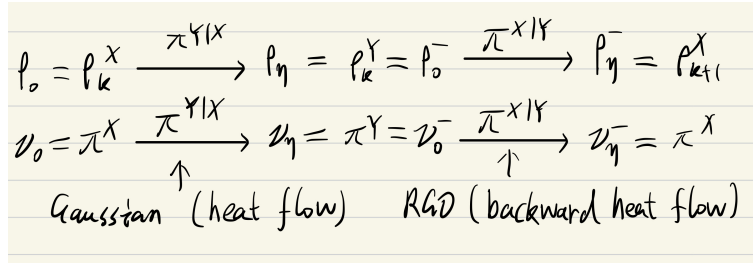 ρ₀ = ρₖˣ —π^{Y|X}→ ρ_η = ρₖ^Y = ρ₀⁻ —π^{X|Y}→ ρ_η⁻ = ρₖ₊₁ˣ
ν₀ = πˣ —π^{Y|X}→ ν_η = π^Y = ν₀⁻ —π^{X|Y}→ ν_η⁻ = πˣ
↑ ↑
Gaussian (heat flow) RGO (backward heat flow)